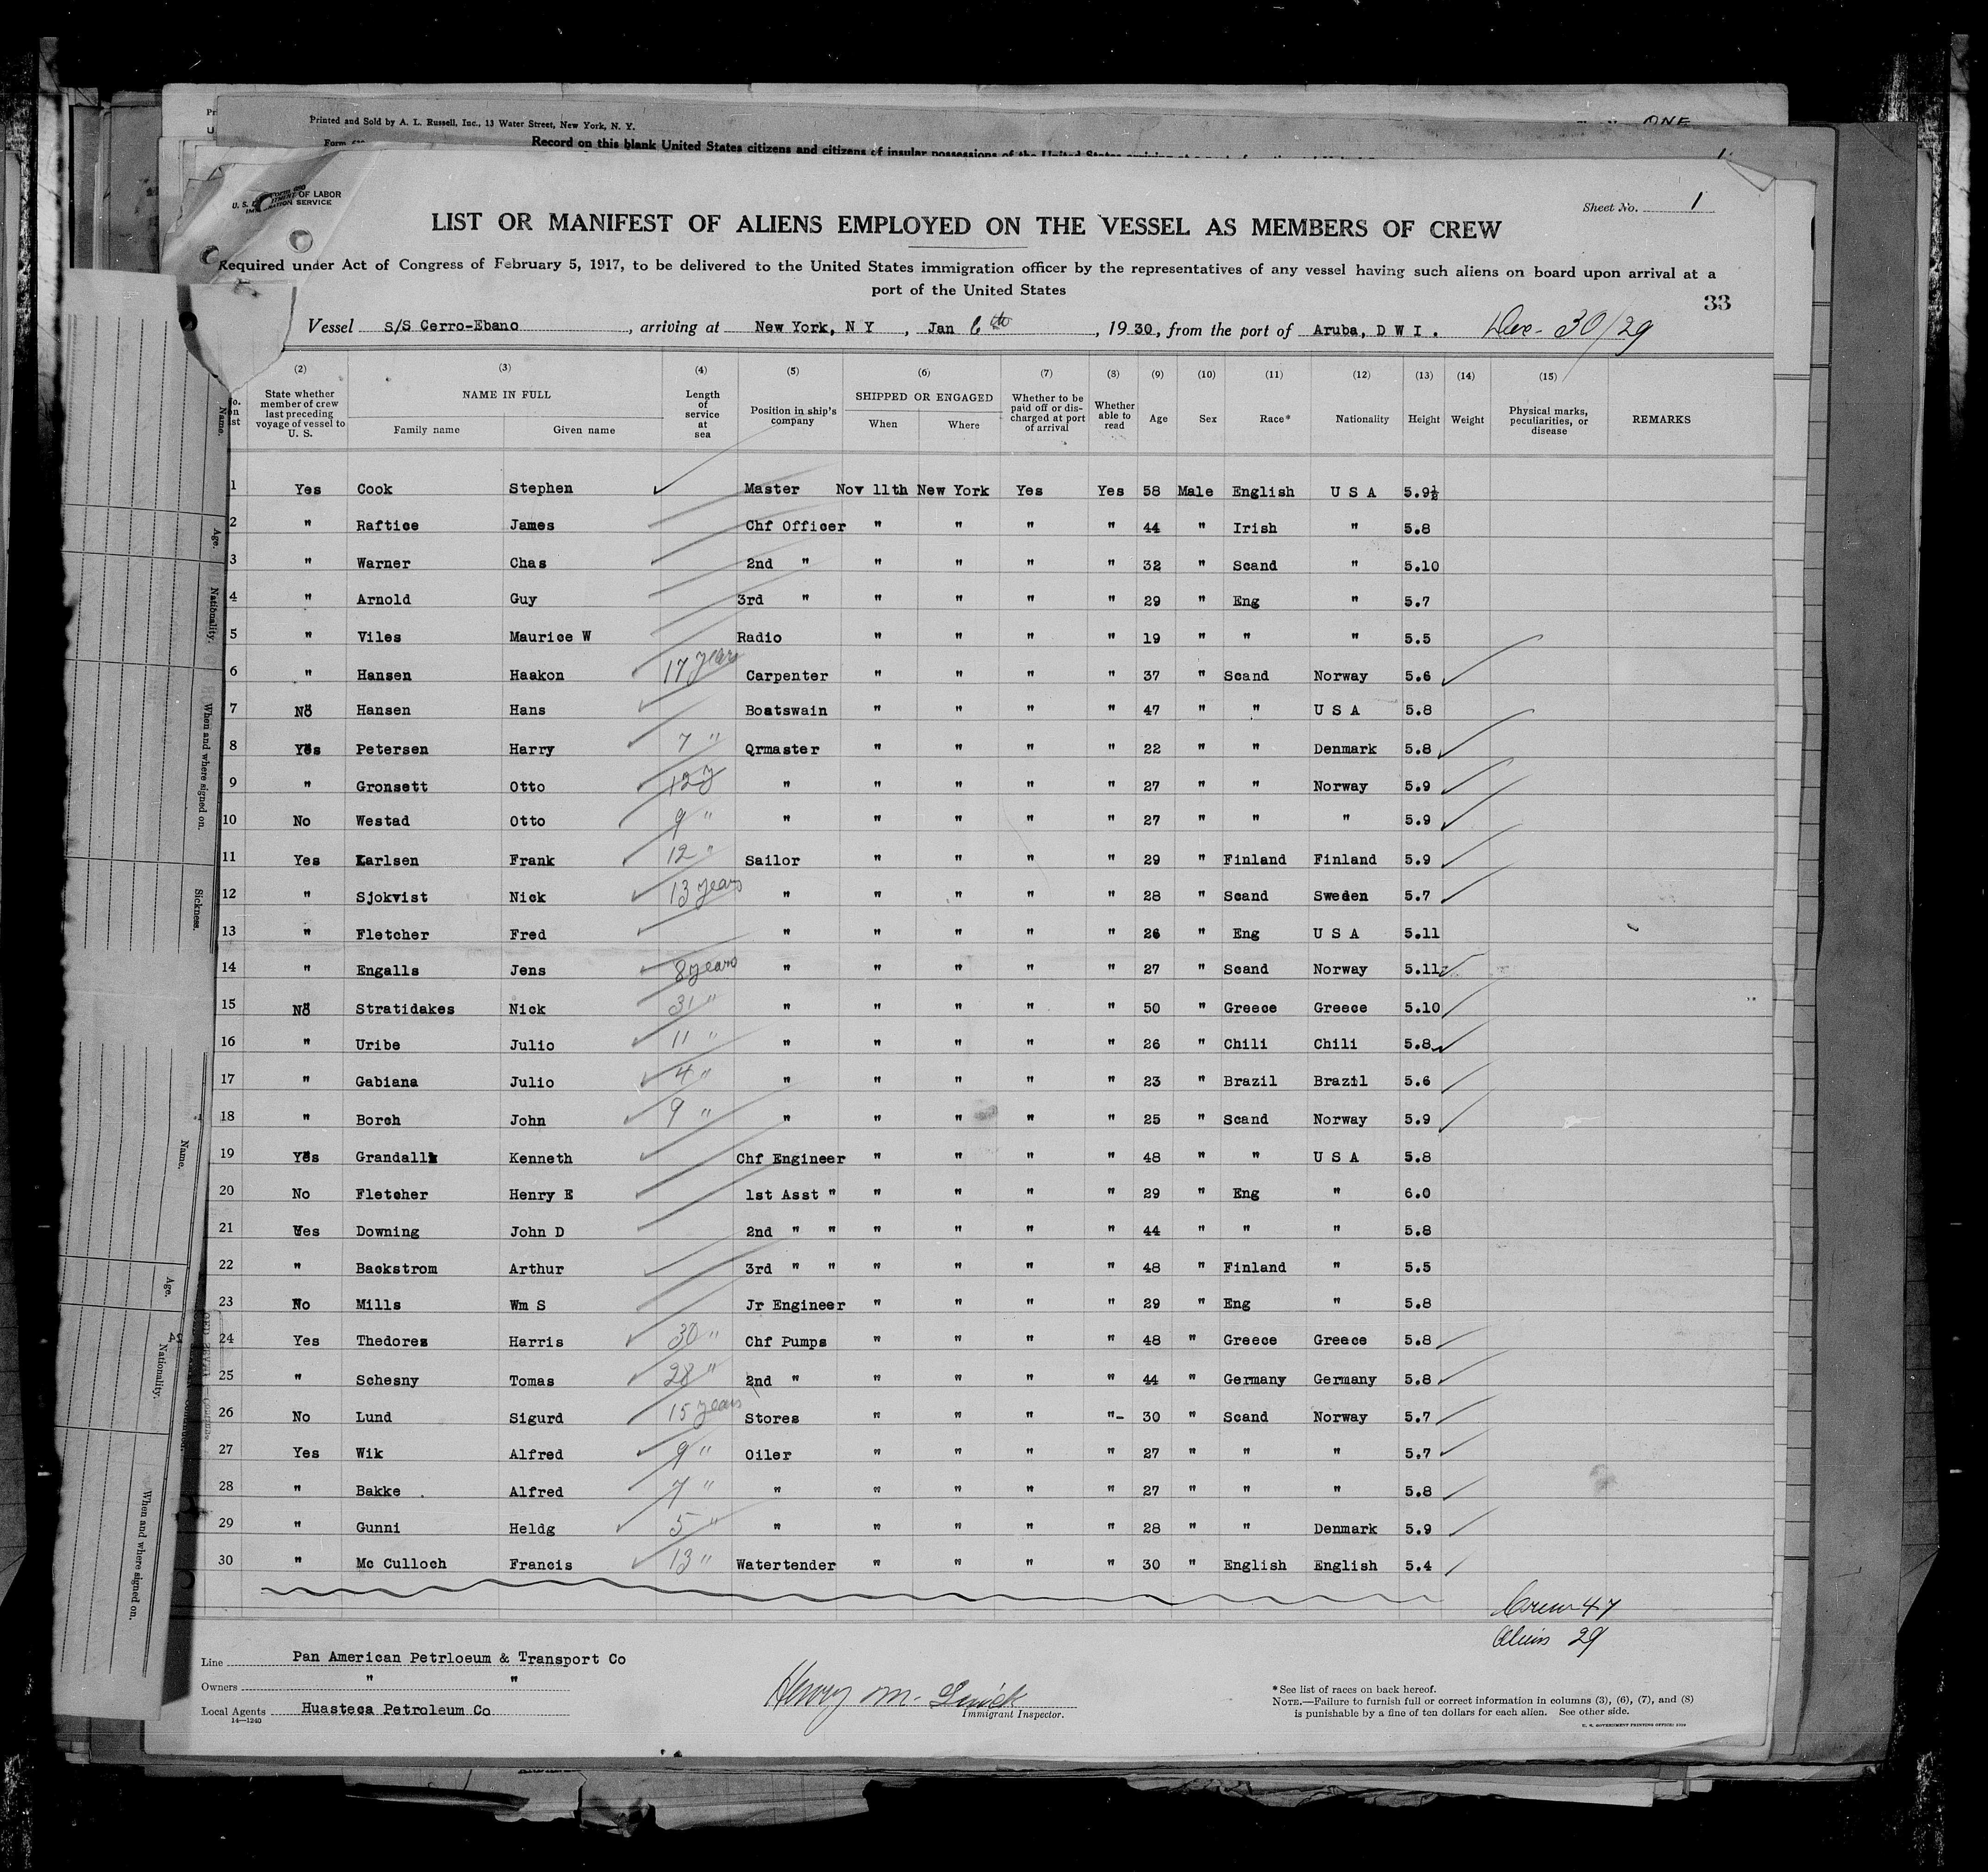 Printed and Sold by A. L. Russell, Inc., 13 Water Street, New York, N. Y.
ONE
Record on this blank United States citizens and citizens of insular possessions of the United States
U. S. DEPARTMENT OF LABOR
IMMIGRATION SERVICE
Sheet No. 1
LIST OR MANIFEST OF ALIENS EMPLOYED ON THE VESSEL AS MEMBERS OF CREW
Required under Act of Congress of February 5, 1917, to be delivered to the United States immigration officer by the representatives of any vessel having such aliens on board upon arrival at a
port of the United States
33
Vessel S/S Cerro-Ebano, arriving at New York, N Y, Jan 6th, 1930, from the port of Aruba, D W I. Dec- 30/29
(2) (3) (4) (5) (6) (7) (8) (9) (10) (11) (12) (13) (14) (15)
State whether member of crew last preceding voyage of vessel to U. S. NAME IN FULL Family name Given name Length of service at sea Position in ship's company SHIPPED OR ENGAGED When Where Whether to be paid off or discharged at port of arrival Whether able to read Age Sex Race* Nationality Height Weight Physical marks, peculiarities, or disease REMARKS
1 Yes Cook Stephen Master Nov 11th New York Yes Yes 58 Male English U S A 5.9½
2 " Raftice James Chf Officer " " " " 44 " Irish " 5.8
3 " Warner Chas 2nd " " " " " 32 " Scand " 5.10
4 " Arnold Guy 3rd " " " " " 29 " Eng " 5.7
5 " Viles Maurice W Radio " " " " 19 " " " 5.5
6 " Hansen Haakon 17 years Carpenter " " " " 37 " Scand Norway 5.6
7 No Hansen Hans Boatswain " " " " 47 " " U S A 5.8
8 Yes Petersen Harry 7 " Qrmaster " " " " 22 " " Denmark 5.8
9 " Gronsett Otto 12 y " " " " " 27 " " Norway 5.9
10 No Westad Otto 9 " " " " " " 27 " " " 5.9
11 Yes Karlsen Frank 12 " Sailor " " " " 29 " Finland Finland 5.9
12 " Sjokvist Nick 13 years " " " " " 28 " Scand Sweden 5.7
13 " Fletcher Fred " " " " " 26 " Eng U S A 5.11
14 " Engalls Jens 8 years " " " " " 27 " Scand Norway 5.11
15 No Stratidakes Nick 31 " " " " " " 50 " Greece Greece 5.10
16 " Uribe Julio 11 " " " " " " 26 " Chili Chili 5.8
17 " Gabiana Julio 4 " " " " " " 23 " Brazil Brazil 5.6
18 " Borch John 9 " " " " " " 25 " Scand Norway 5.9
19 Yes Grandall Kenneth Chf Engineer " " " " 48 " " U S A 5.8
20 No Fletcher Henry E 1st Asst " " " " " 29 " Eng " 6.0
21 Yes Downing John D 2nd " " " " " " 44 " " " 5.8
22 " Backstrom Arthur 3rd " " " " " " 48 " Finland " 5.5
23 No Mills Wm S Jr Engineer " " " " 29 " Eng " 5.8
24 Yes Thedores Harris 30 " Chf Pumps " " " " 48 " Greece Greece 5.8
25 " Schesny Tomas 28 " 2nd " " " " " 44 " Germany Germany 5.8
26 No Lund Sigurd 15 years Stores " " " "- 30 " Scand Norway 5.7
27 Yes Wik Alfred 9 " Oiler " " " " 27 " " " 5.7
28 " Bakke Alfred 7 " " " " " " 27 " " " 5.8
29 " Gunni Heldg 5 " " " " " " 28 " " Denmark 5.9
30 " Mc Culloch Francis 13 " Watertender " " " " 30 " English English 5.4
Crew 47
Aliens 29
Line Pan American Petrloeum & Transport Co
Owners " "
Local Agents Huasteca Petroleum Co
14—1240
Henry M.
Immigrant Inspector.
*See list of races on back hereof.
NOTE.—Failure to furnish full or correct information in columns (3), (6), (7), and (8)
is punishable by a fine of ten dollars for each alien. See other side.
Name.
Age.
Nationality.
When and where signed on.
Sickness.
Name.
Age.
Nationality.
When and where signed on.